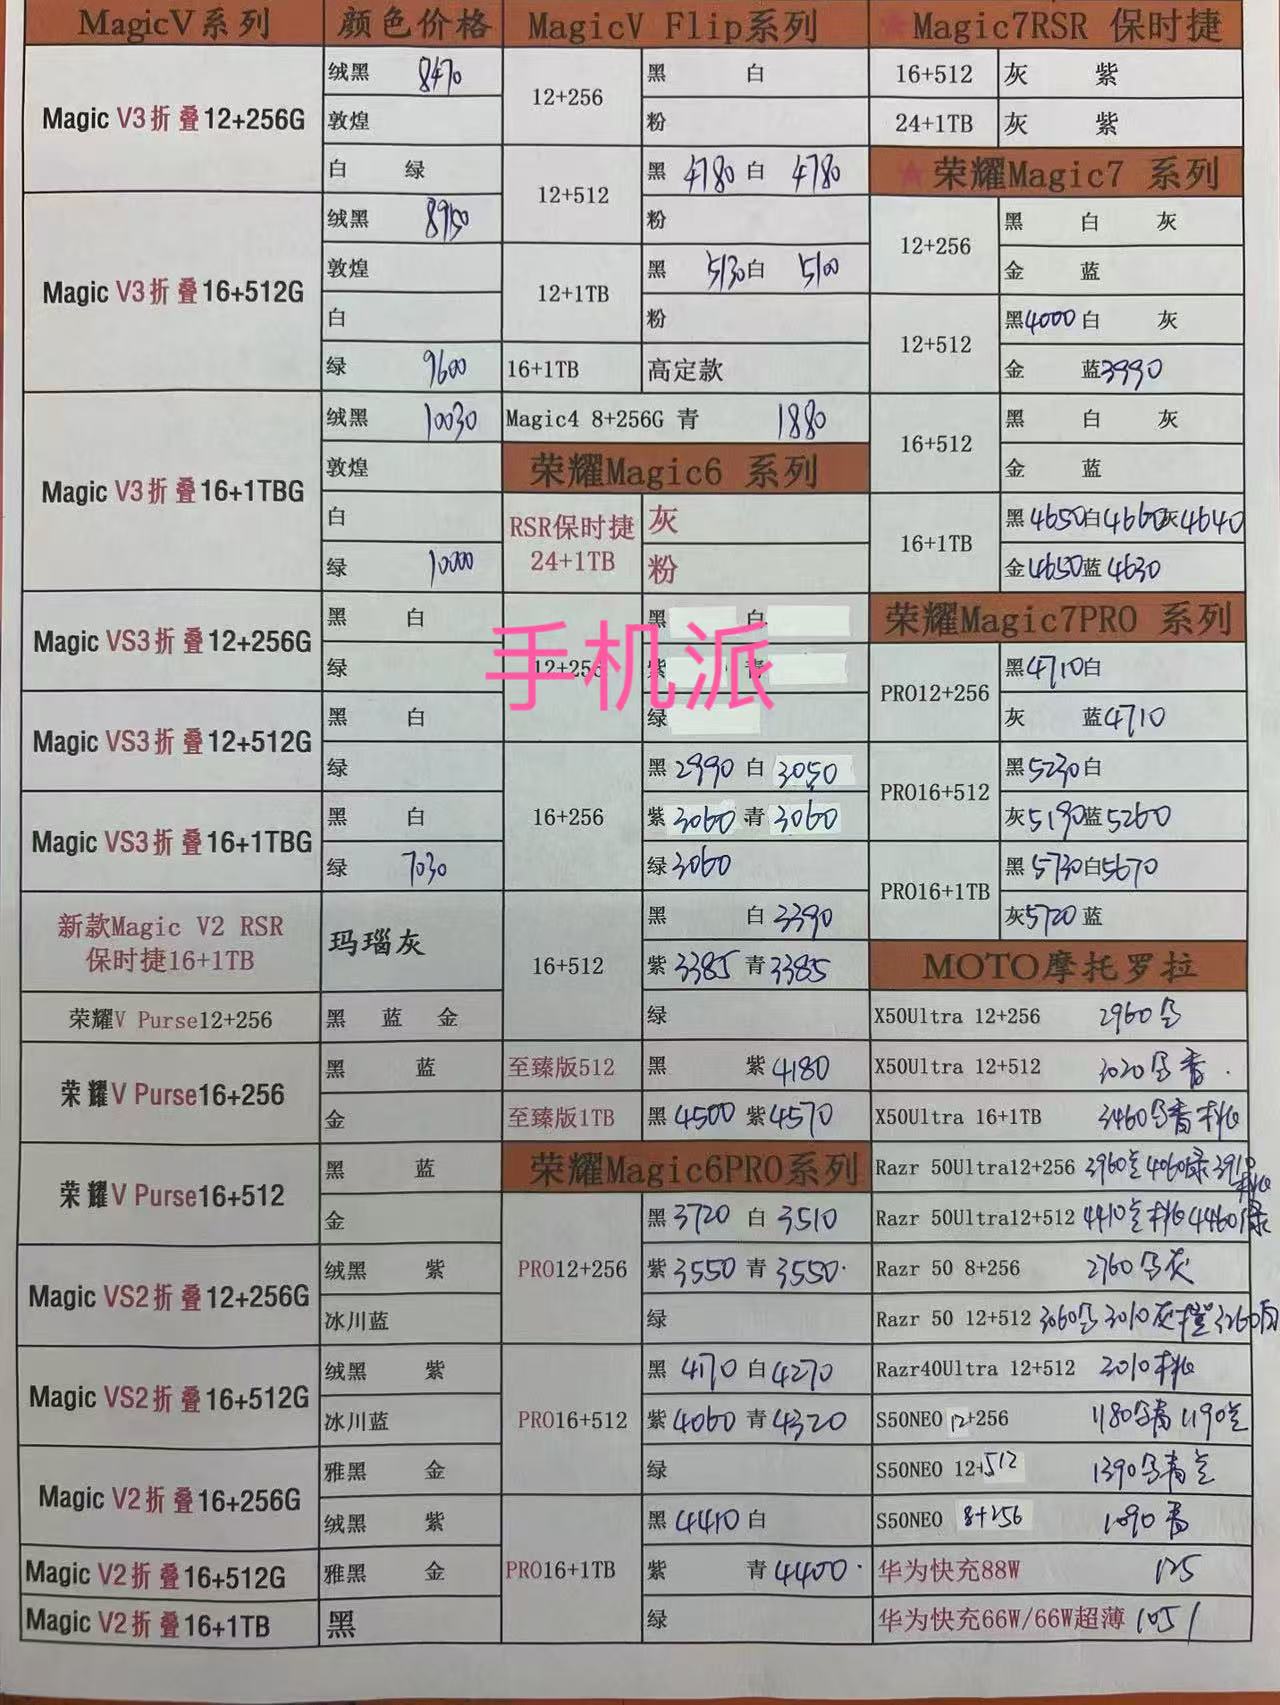 MagicV系列 颜色价格
Magic V3折叠12+256G
绒黑 8470
敦煌
白 绿
Magic V3折叠16+512G
绒黑 8950
敦煌
白
绿 9600
Magic V3折叠16+1TBG
绒黑 10030
敦煌
白
绿 10000
Magic VS3折叠12+256G
黑 白
绿
Magic VS3折叠12+512G
黑 白
绿
Magic VS3折叠16+1TBG
黑 白
绿 7030
新款Magic V2 RSR
保时捷16+1TB
玛瑙灰
荣耀V Purse12+256
黑 蓝 金
荣耀V Purse16+256
黑 蓝
金
荣耀V Purse16+512
黑 蓝
金
Magic VS2折叠12+256G
绒黑 紫
冰川蓝
Magic VS2折叠16+512G
绒黑 紫
冰川蓝
Magic V2折叠16+256G
雅黑 金
绒黑 紫
Magic V2折叠16+512G
雅黑 金
Magic V2折叠16+1TB
黑
MagicV Flip系列
12+256
黑 白
粉
12+512
黑 4780 白 4780
粉
12+1TB
黑 5130白 5100
粉
16+1TB 高定款
Magic4 8+256G 青 1880
荣耀Magic6 系列
RSR保时捷
24+1TB
灰
粉
手机派
12+256
黑 白
紫 青
绿
16+256
黑 2990 白 3050
紫 3060 青 3060
绿 3060
16+512
黑 白 3390
紫 3385 青 3385
绿
至臻版512 黑 紫 4180
至臻版1TB 黑 4500 紫 4570
荣耀Magic6PRO系列
PRO12+256
黑 3720 白 3510
紫 3550 青 3550
绿
PRO16+512
黑 4170 白 4270
紫 4060 青 4320
绿
PRO16+1TB
黑 4410 白
紫 青 4400
绿
★Magic7RSR 保时捷
16+512 灰 紫
24+1TB 灰 紫
★荣耀Magic7 系列
12+256
黑 白 灰
金 蓝
12+512
黑4000 白 灰
金 蓝3990
16+512
黑 白 灰
金 蓝
16+1TB
黑4650白4660灰4640
金4650蓝4630
荣耀Magic7PRO 系列
PRO12+256
黑4710白
灰 蓝4710
PRO16+512
黑5230白
灰5190蓝5260
PRO16+1TB
黑5730白5670
灰5720蓝
MOTO摩托罗拉
X50Ultra 12+256 2960
X50Ultra 12+512 3020 青
X50Ultra 16+1TB 3460 青桃
Razr 50Ultra12+256 3960 4060绿 3910桃
Razr 50Ultra12+512 4410 桃 4460绿
Razr 50 8+256 2760 灰
Razr 50 12+512 3060 3010灰 3260
Razr40Ultra 12+512 3010桃
S50NEO 12+256 1180 青 1190
S50NEO 12+512 1390 青
S50NEO 8+256 1090青
华为快充88W 125
华为快充66W/66W超薄 105